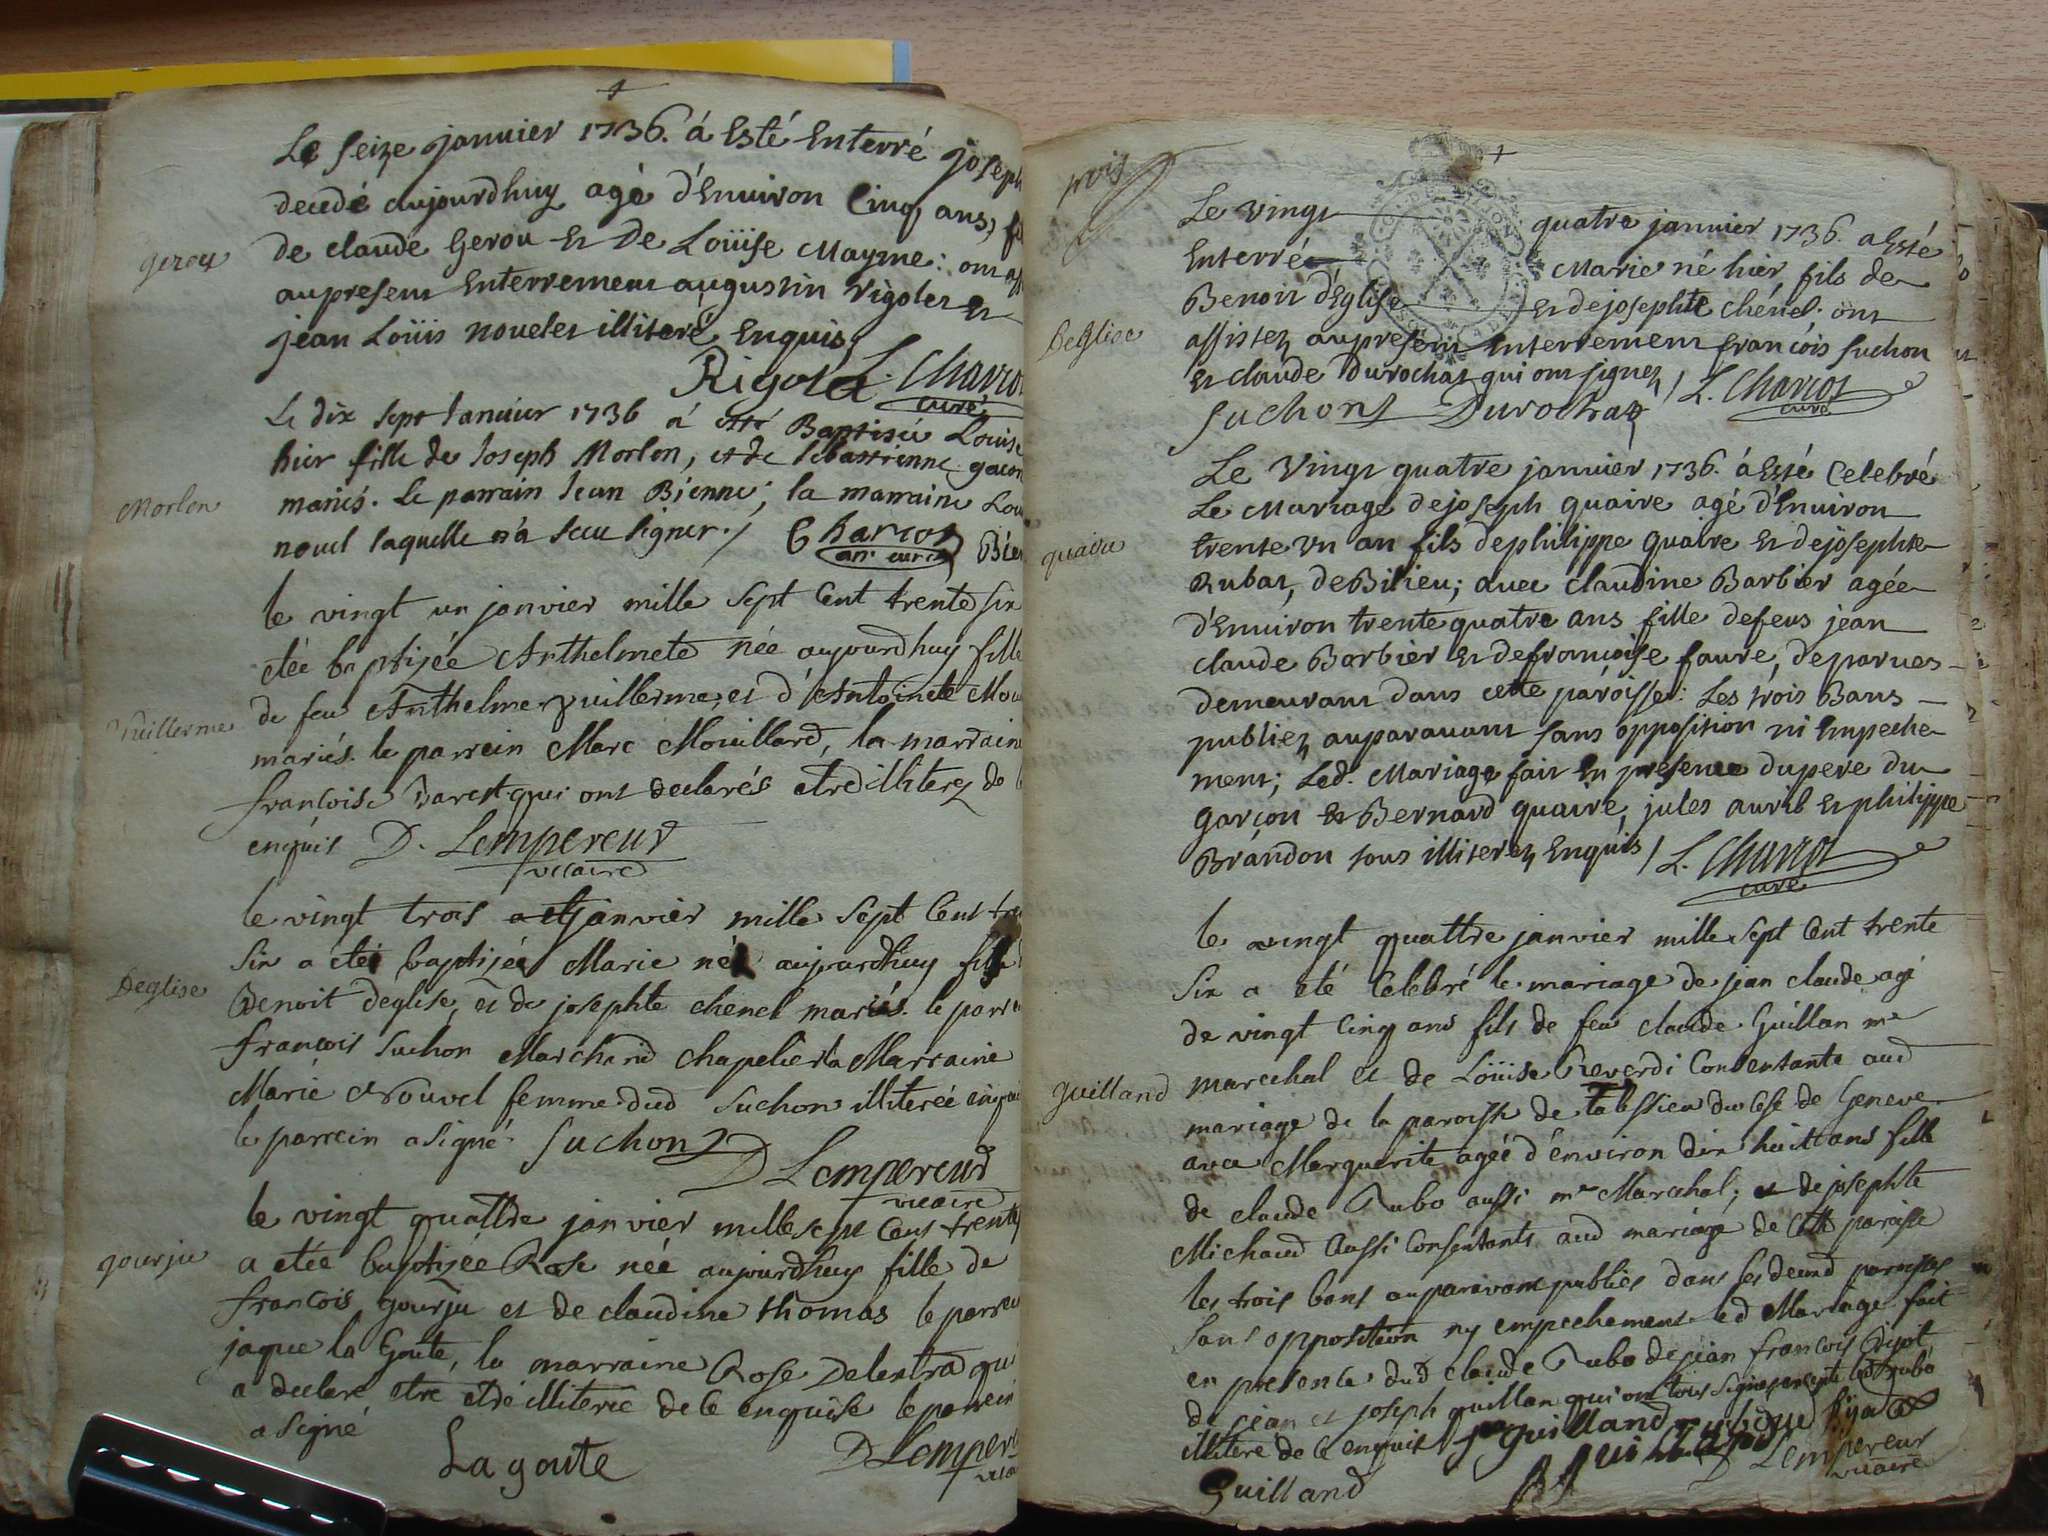 Le seize janvier 1736. á Esté Enterré joseph
decedé aujourdhuy agé d'Environ Cinq ans, fil
gerou
de claude Gerou Et De Loüise Mayme: ont ass
aupresent Enterrement augustin Rigolet Et
jean Loüis nouelet illiteré Enquis
Rigolet L. Charcot
curé
Le dix sept Janvier 1736 á esté Baptisée Louise
hier fille de Joseph Morlon, et de sebastienne gacon
Morlon
mariés. Le parrain Jean Bienne; la marraine Lou
nouel laquelle n'á sceu signer./ Charcot Bien
an. curé
le vingt un janvier mille sept Cent trente six
etée baptizée Anthelmete née aujourdhuy fille
Vuillerme
de feu Anthelme vuillerme, et d'Antoinete Mou
mariés. le parrein Marc Mouillard, la marraine
francoise Daret qui ont declarés etre illiterez de
enquis D. Lempereur
vicaire
le vingt trois janvier mille sept Cent tre
six a eté baptizée Marie né aujourdhuy fils
Deglise
Benoit déglise, et de josephte chenel mariés. le parre
francois Suchon Marchand chapelier la Marraine
Marie Nouvel femme dud Suchon illiterée enqui
le parrein a signé. Suchon D Lempereur
vicaire
le vingt quattre janvier mille sept Cent trente
gourju
a etée baptizée Rose née aujourdhuy fille de
francois gourju et de claudine thomas le parrein
jaque la Goute, la marraine Rose Delentra qui
a declaré etre illiterée de ce enquise le parrein
a signé
Lagoute D Lemper
vicai
trois
Le vingt quatre janvier 1736. a Esté
Enterré Marie né hier fils de
Deglise
Benoit d'Eglise Et de josephte chénel. ont
assistez aupresent Enterrement francois suchon
Et claude Durochat qui ont signez / L. Charcot
curé
Suchon Durochat
Le Vingt quatre janvier 1736. á Esté Celebré
Le Mariage de joseph quaire agé d'Environ
quaire
trente un an fils de philippe quaire Et de josephte
Rubat, de Bilieu; avec claudine Barbier agée
d'Environ trente quatre ans fille de feus jean
claude Barbier Et de francoise faure, de parves
demeurant dans cette paroisse: Les trois Bans
publiez auparavant sans opposition ni Empeche
ment; Led. Mariage fait En presence du pere du
garçon Et Bernard quaire, jules avril Et philippe
Brandon tous illiterez Enquis / L. Charcot
curé
le vingt quattre janvier mille sept Cent trente
six a eté Celebré le mariage de jean claude agé
de vingt cinq ans fils de feu claude Guillan me
guilland
marechal et de Loüise Reverdi Consentante aud
mariage de la paroisse de Talissieu diocese de Geneve
avec Marguerite agée d'environ dix huit ans fille
de claude Rubo aussi me Marechal; et de josephte
Michaud Aussi Consentants aud mariage de Cette paroisse
les trois bans auparavant publiés dans les deux paroisses
sans opposition ny empechement led Mariage fait
en presence dud claude Rubo de jean francois
de jean et joseph guillan qui ont tous signé excepté led Rubo
illiteré de ce enquis Jn Guilland
Guilland
D Lempereur
vicaire
Guilland